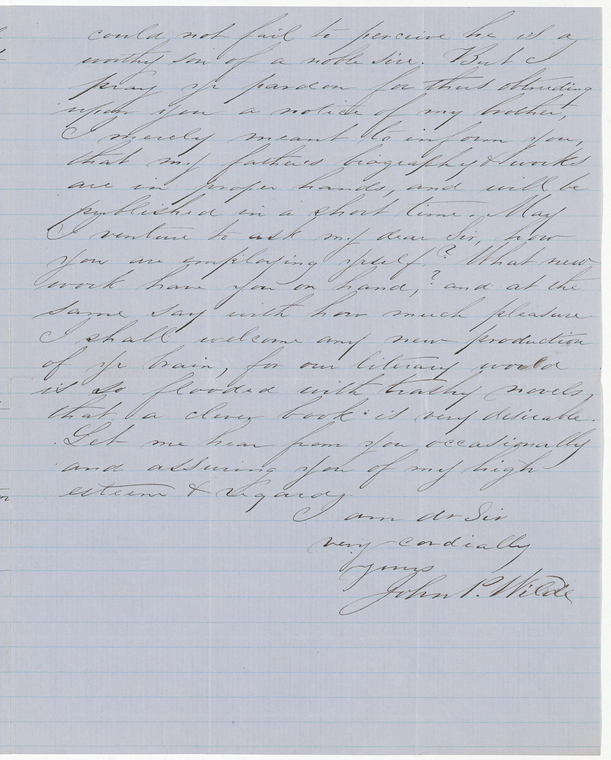 could not fail to perceive he is a
worthy son of a noble sire. But I
pray yr pardon for thus obtruding
upon you a notice of my brother,
I merely meant to inform you,
that my father's biography & works
are in proper hands, and will be
published in a short time. May
I venture to ask my dear Sir, how
you are employing yrself? What new
work have you on hand,? and at the
same say with how much pleasure
I shall welcome any new production
of yr brain, for our literary world
is so flooded with trashy novels,
that a clever book is very desirable.
Let me hear from you occasionally
and assuring you of my high
esteem & regards
I am dr Sir
very cordially
yours
John P. Wilde